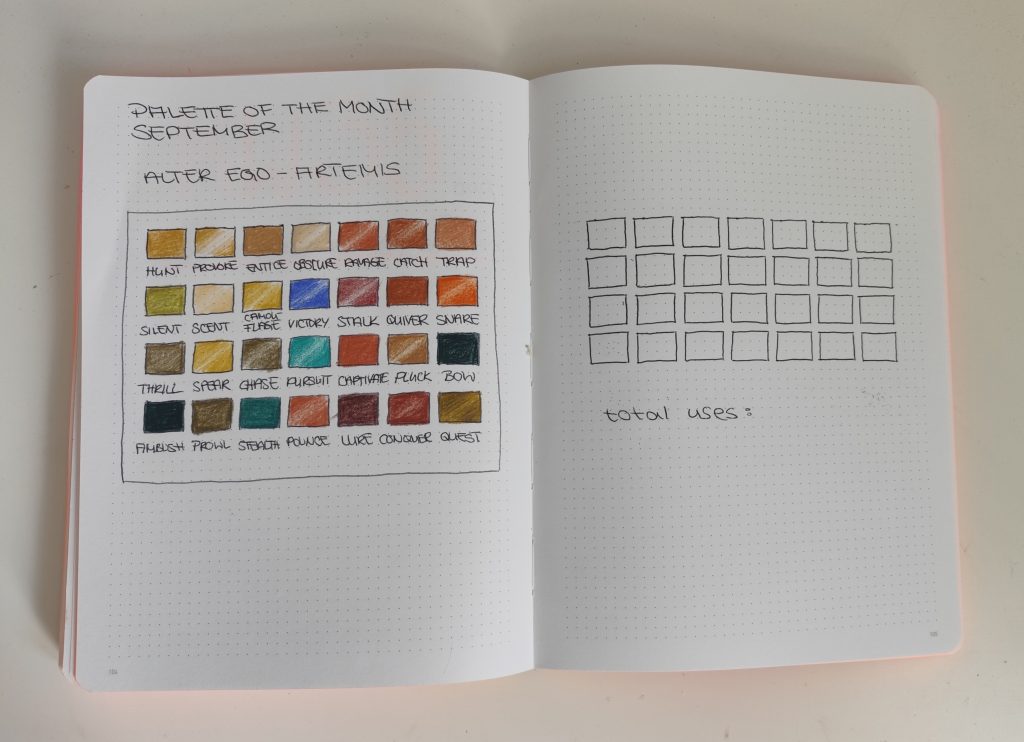 PALETTE OF THE MONTH
SEPTEMBER
ALTER EGO - ARTEMIS
HUNT PROVOKE ENTICE OBSCURE RAVAGE CATCH TRAP
SILENT SCENT CAMOU-FLAGE VICTORY STALK QUIVER SNARE
THRILL SPEAR CHASE PURSUIT CAPTIVATE PLUCK BOW
AMBUSH PROWL STEALTH POUNCE LURE CONQUER QUEST
104
total uses:
105